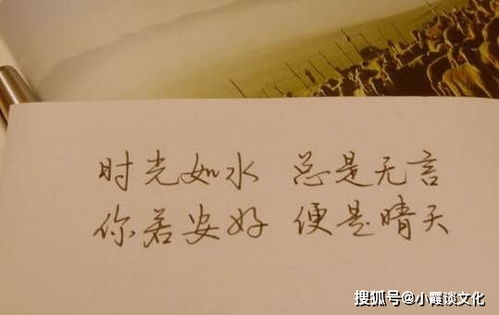 时光如水 总是无言
你若安好 便是晴天
搜狐号@小霞谈文化